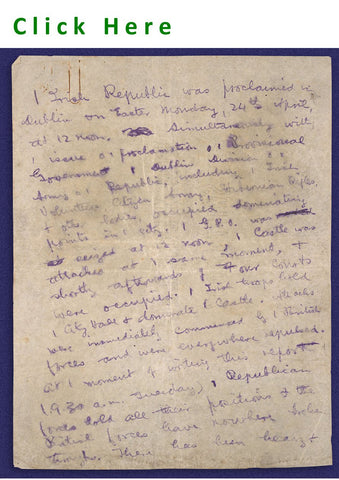 Click Here
1 Irish Republic was proclaimed in
Dublin on Easter Monday, 24th April,
at 12 noon. Simultaneously with
1 issue o 1 proclamation o 1 Provisional
Government 1 Dublin
Army o 1 Republic, including 1 Irish
Volunteers, Citizen Army, Hibernian Rifles,
& other bodies, occupied dominating
points in 1 city. 1 G.P.O. was
seized at 12 noon, 1 Castle was
attacked at 1 same moment, &
shortly afterwards 1 Four Courts
were occupied. 1 Irish troops hold
1 City Hall & dominate 1 Castle. Attacks
were immediately commenced by 1 British
forces and were everywhere repulsed.
At 1 moment o writing this report
(9.30 a.m. Tuesday) 1 Republican
forces hold all their positions & the
British forces have nowhere broken
through. There has been heavy &